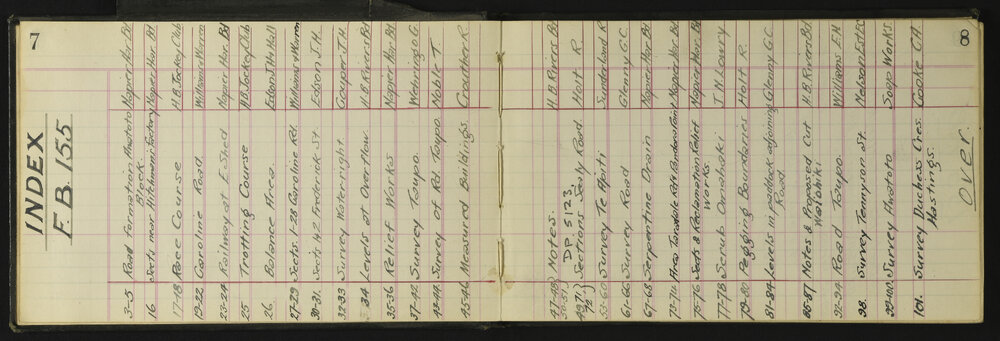 7
INDEX
F.B. 155
3-5 Road Formation Awatoto Napier Har. Bd
Block
16 Sects near Hitchmen Factory Napier Har. Bd
17-18 Race Course H.B. Jockey Club
19-22 Caroline Road Williams Warren
23-24 Railway at E Shed Napier Har. Bd
25 Trotting Course H.B. Jockey Club
26 Balance Area. Edson J.H
27-29 Sects 1-28 Caroline Rd. Williams Warren
30-31. Sects 42 Frederick St. Edson J.H.
32-33 Survey Waterright Couper J.H
34 Levels at Overflow H.B. Rivers Bd
35-36 Relief Works Napier Har. Bd
37-42 Survey Taupo. Wehring O.G.
43-44. Survey of Rd. Taupo Noble T.
45-46 Measured Buildings. Crowther R.
8
47-48 Notes. H.B. Rivers Bd
DP 5123
Sections Seaty Road. Holt R
55-60 Survey Te Apiti Sunderland R
61-66 Survey Road Glenny G.C.
67-68 Serpentine Drain Napier Har. Bd
73-74 Area Napier Har. Bd
75-76 Sects & Reclamation Relief Napier Har. Bd
Works
77-78 Scrub Omahaki J.N. Lowry
79-80 Pegging Boundaries Holt R.
81-84 Levels in paddock adjoining Glenny G.C.
Road.
85-87 Notes & Proposed Cut H.B. Rivers Bd
Waiohiki
92-94. Road Taupo. Williams E.H
98. Survey Tennyson St. Nelson
99-100 Survey Awatoto Soap Works
101. Survey Duchess Cres. Cooke C.A
Hastings.
Over.